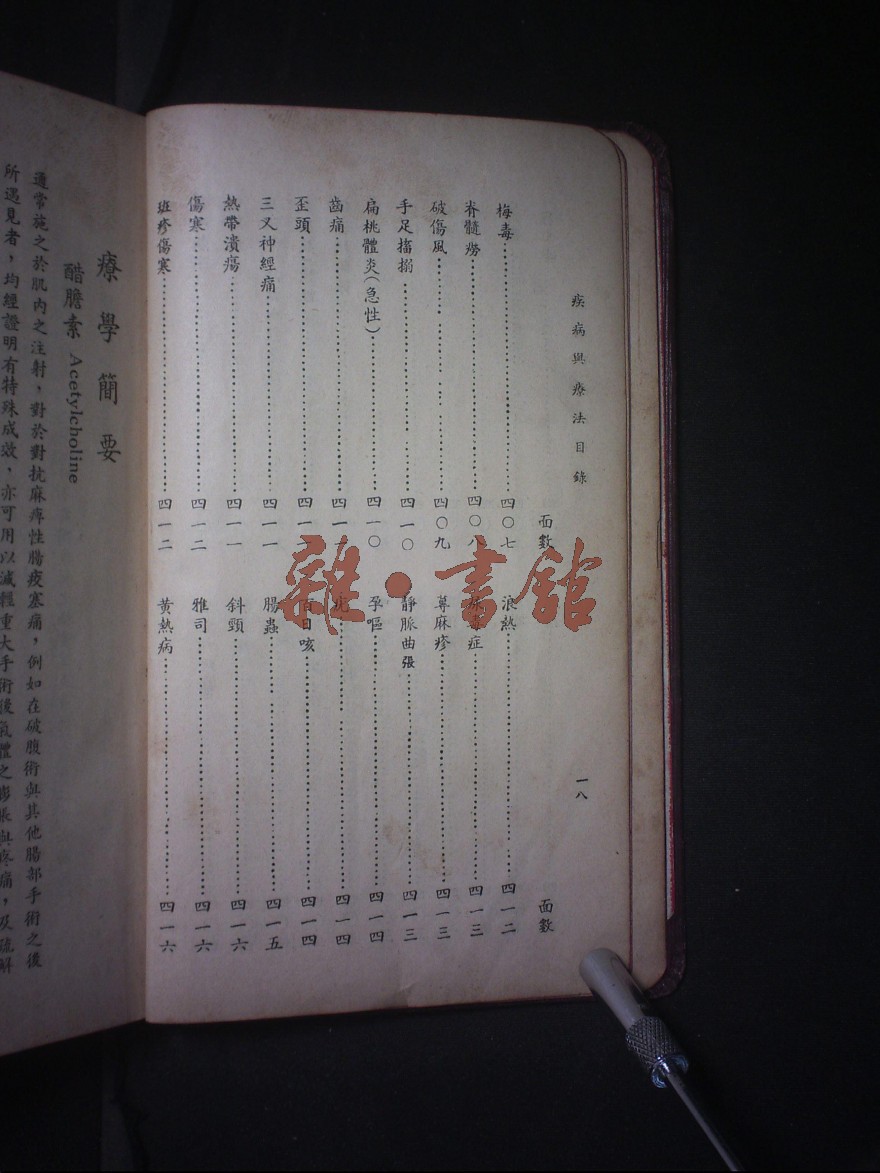 疾病與療法目錄
一八
面數
梅毒……四〇七
脊髓癆……四〇八
破傷風……四〇九
手足搐搦……四一〇
扁桃體炎(急性)……四一〇
齒痛……四一
歪頭……四一
三叉神經痛……四一一
熱帶潰瘍……四一一
傷寒……四一二
斑疹傷寒……四一二
面數
浪熱……四一二
症……四一三
蕁麻疹……四一三
靜脈曲張……四一三
孕嘔……四一四
四一四
百日咳……四一四
腸蟲……四一五
斜頸……四一六
雅司……四一六
黃熱病……四一六
療學簡要
醋膽素 Acetylcholine
通常施之於肌內之注射，對於對抗麻痺性腸疫塞痛，例如在破腹術與其他腸部手術之後
所遇見者，均經證明有特殊成效，亦可用以減輕重大手術後氣體之膨脹與疼痛，及疏解
雜•書館